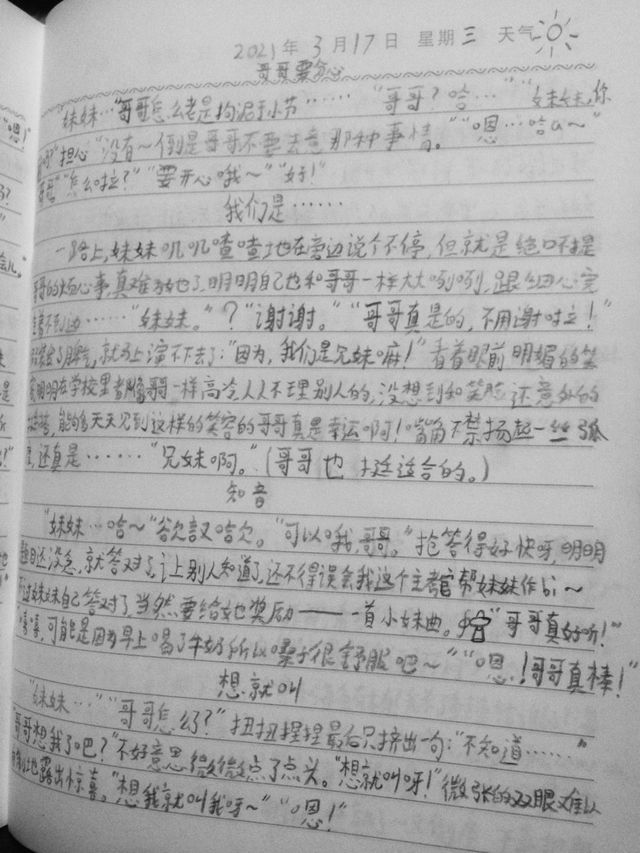 2021年 3月17日 星期三 天气
哥哥要多心
妹妹…"哥哥怎么老是拘泥于小节……""哥哥？哈…""妹妹,你
担心"没有～倒是哥哥不要去意那种事情。""嗯…哈a～"
"怎么啦?""要开心哦～""好!"
我们是……
一路上,妹妹叽叽喳喳地在旁边说个不停,但就是绝口不提
哥哥的烦心事,真难为她了,明明自己也和哥哥一样大大咧咧,跟细心完
不到边……"妹妹。"？"谢谢。""哥哥真是的,不用谢啦!"
脾气,就马上演不下去了:"因为,我们是兄妹嘛!"看着眼前明媚的笑
明明在学校里都像哥哥一样高冷从不理别人的,没想到和笑脸还意外的
能够天天见到这样的笑容的哥哥真是幸运啊!嘴角不禁扬起一丝弧
,还真是……"兄妹啊。"(哥哥也挺适合的。)
知音
"妹妹…哈～"欲言又哈欠。"可以哦,哥哥。"抢答得好快呀,明明
题目还没念,就答对了,让别人知道了,还不得误会我这个主考官帮妹妹作弊～
不过妹妹自己答对了,当然要给她奖励——一首小妹曲。"哥哥真好听!"
"嘻嘻,可能是因为早上喝了牛奶所以嗓子很舒服吧～""嗯!哥哥真棒!"
想就叫
"妹妹…""哥哥怎么了?"扭扭捏捏最后只挤出一句:"不知道……"
"哥哥想我了吧?"不好意思微微点了点头。"想就叫呀!"微张的双眼难以
地露出惊喜。"想我就叫我呀～""嗯!"